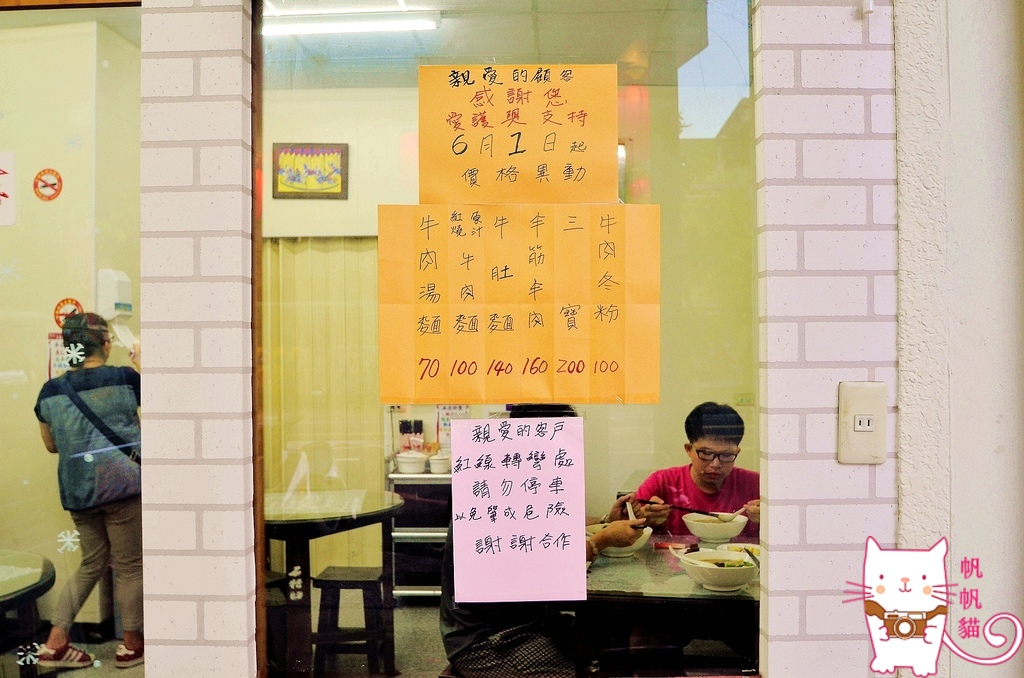 親愛的顧客
感謝您
愛護與支持
6月1日起
價格異動
牛肉湯麵 70
紅燒原汁牛肉麵 100
牛肚麵 140
半筋半肉 160
三寶 200
牛肉冬粉 100
親愛的客戶
紅線轉彎處
請勿停車
以免肇成危險
謝謝合作
帆帆貓